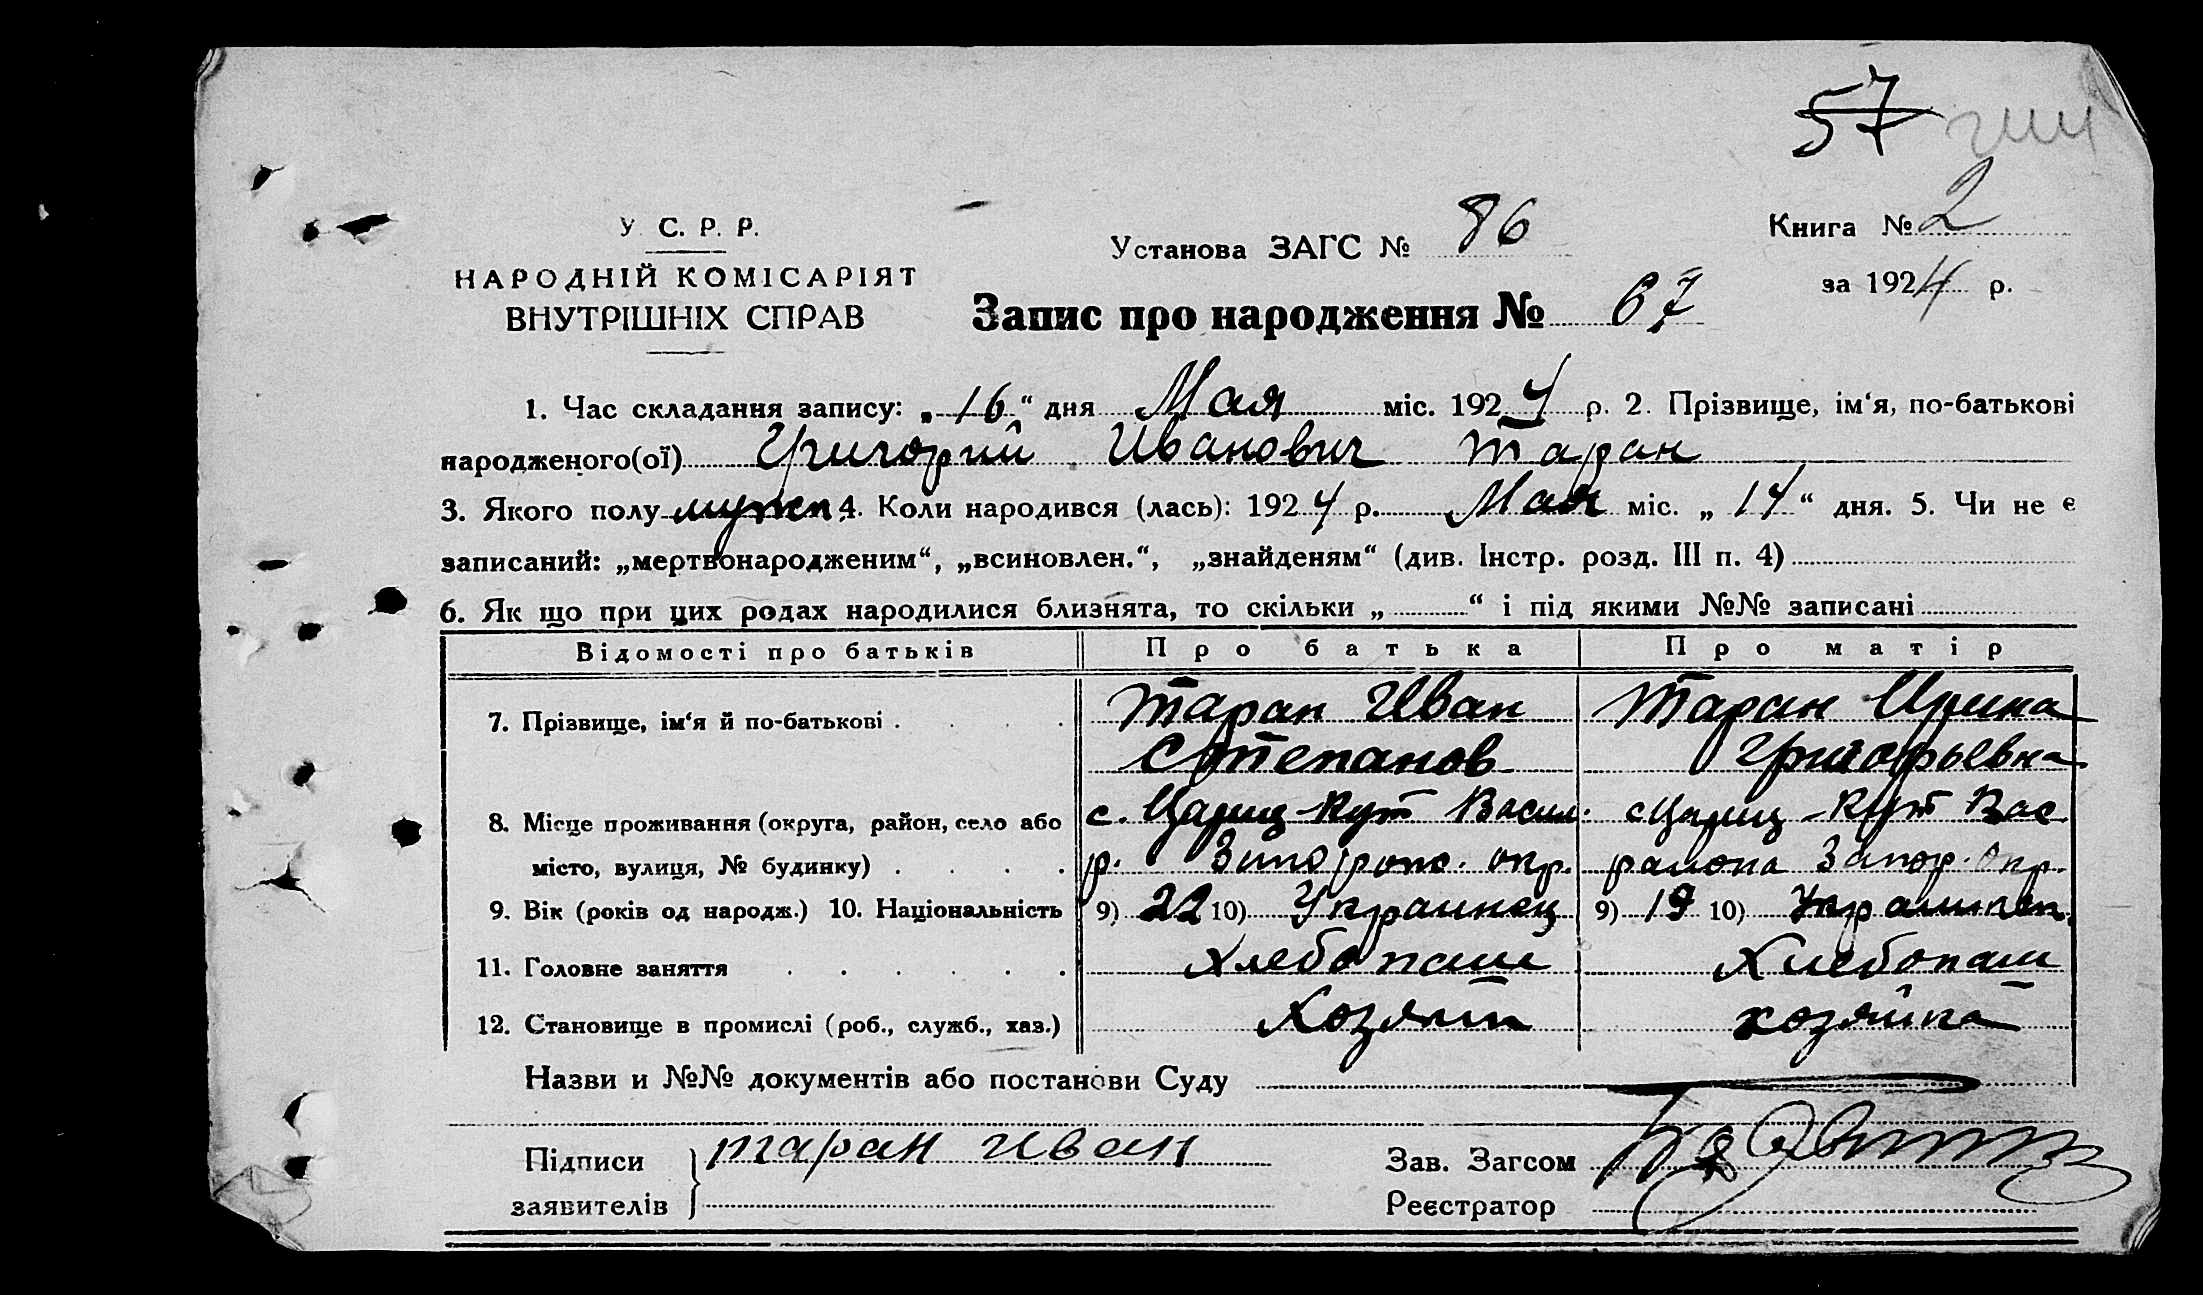 57
У. С. Р. Р.
НАРОДНІЙ КОМІСАРІЯТ
ВНУТРІШНІХ СПРАВ
Установа ЗАГС № 86
Книга № 2
за 1924 р.
Запис про народження № 67
1. Час складання запису: „16“ дня Мая міс. 1924 р. 2. Прізвище, ім‘я, по-батькові
народженого(ої) Григорий Иванович Таран
3. Якого полу мужск 4. Коли народився (лась): 1924 р. Мая міс. „14“ дня. 5. Чи не є
записаний: „мертвонародженим“, „всиновлен.“, „знайденям“ (див. Інстр. розд. III п. 4)
6. Як що при цих родах народилися близнята, то скільки „ “ і під якими №№ записані
Відомості про батьків Про батька Про матір
7. Прізвище, ім‘я й по-батькові . . . . Таран Иван Таран Ирина
Степанов Григорьевна
8. Місце проживання (округа, район, село або с. Цариц-Кут Васил. с Цариц-Кут Вас
місто, вулиця, № будинку) . . . . р. Запорож. окр. района Запор. окр.
9. Вік (років од народж.) 10. Національність 9) 22 10) Украинец 9) 19 10)
11. Головне заняття . . . . . . Хлебопаш Хлебопаш
12. Становище в промислі (роб., служб., хаз.) Хозяин хозяйка
Назви и №№ документів або постанови Суду
Підписи таран иван Зав. Загсом
заявителів Реєстратор